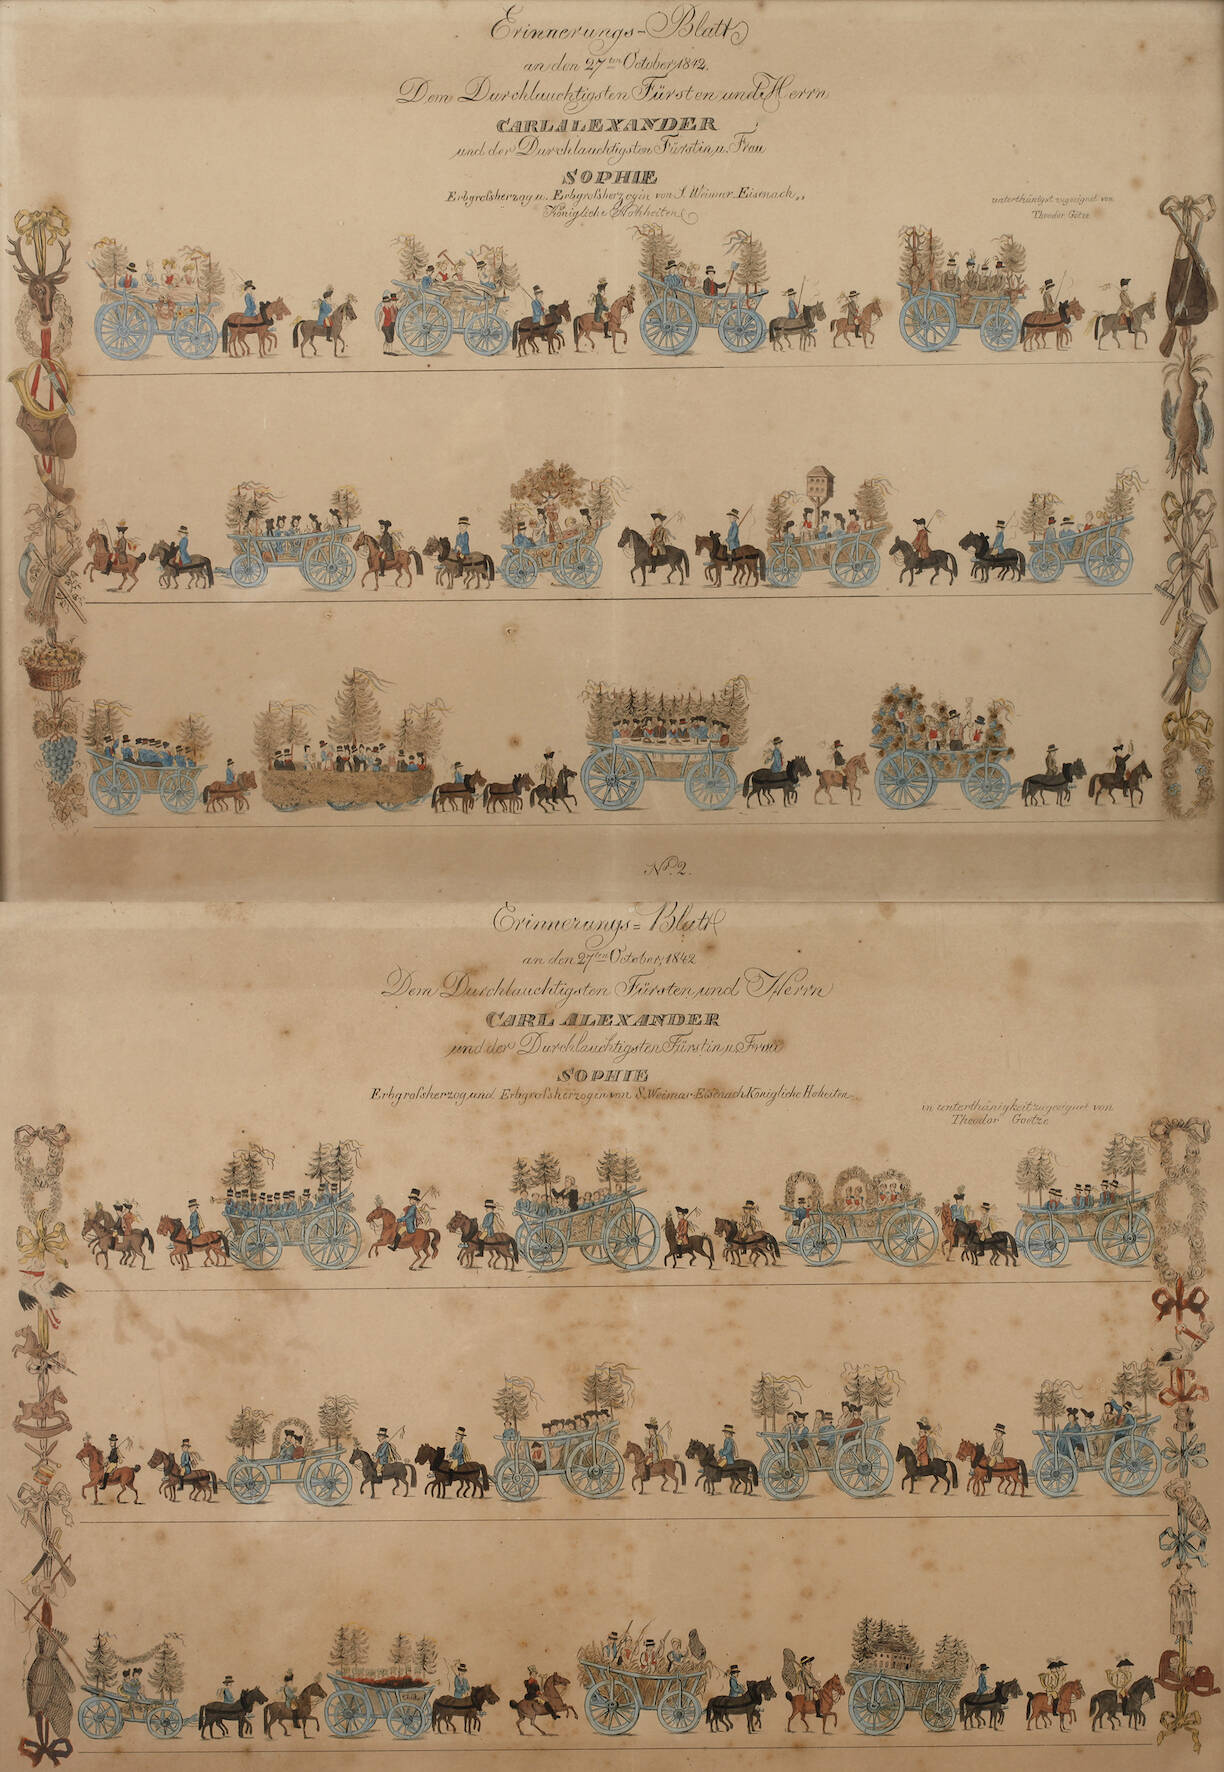 Erinnerungs-Blatt
an den 27ten October 1842.
Dem Durchlauchtigsten Fürsten und Herrn
CARL ALEXANDER
und der Durchlauchtigsten Fürstin u. Frau
SOPHIE
Erbgroſsherzog u. Erbgroſsherzogin von S. Weimar-Eisenach,,
Königliche Hohheiten
unterthänigst zugeeignet von
Theodor Götze
No. 2.
Erinnerungs=Blatt
an den 27ten October, 1842
Dem Durchlauchtigsten Fürsten und Herrn
CARL ALEXANDER
und der Durchlauchtigsten Fürstin u. Frau
SOPHIE
Erbgroſsherzog und Erbgroſsherzogin von S. Weimar-Eisenach Königliche Hoheiten.
in unterthänigkeit zugeeignet von
Theodor Goetze